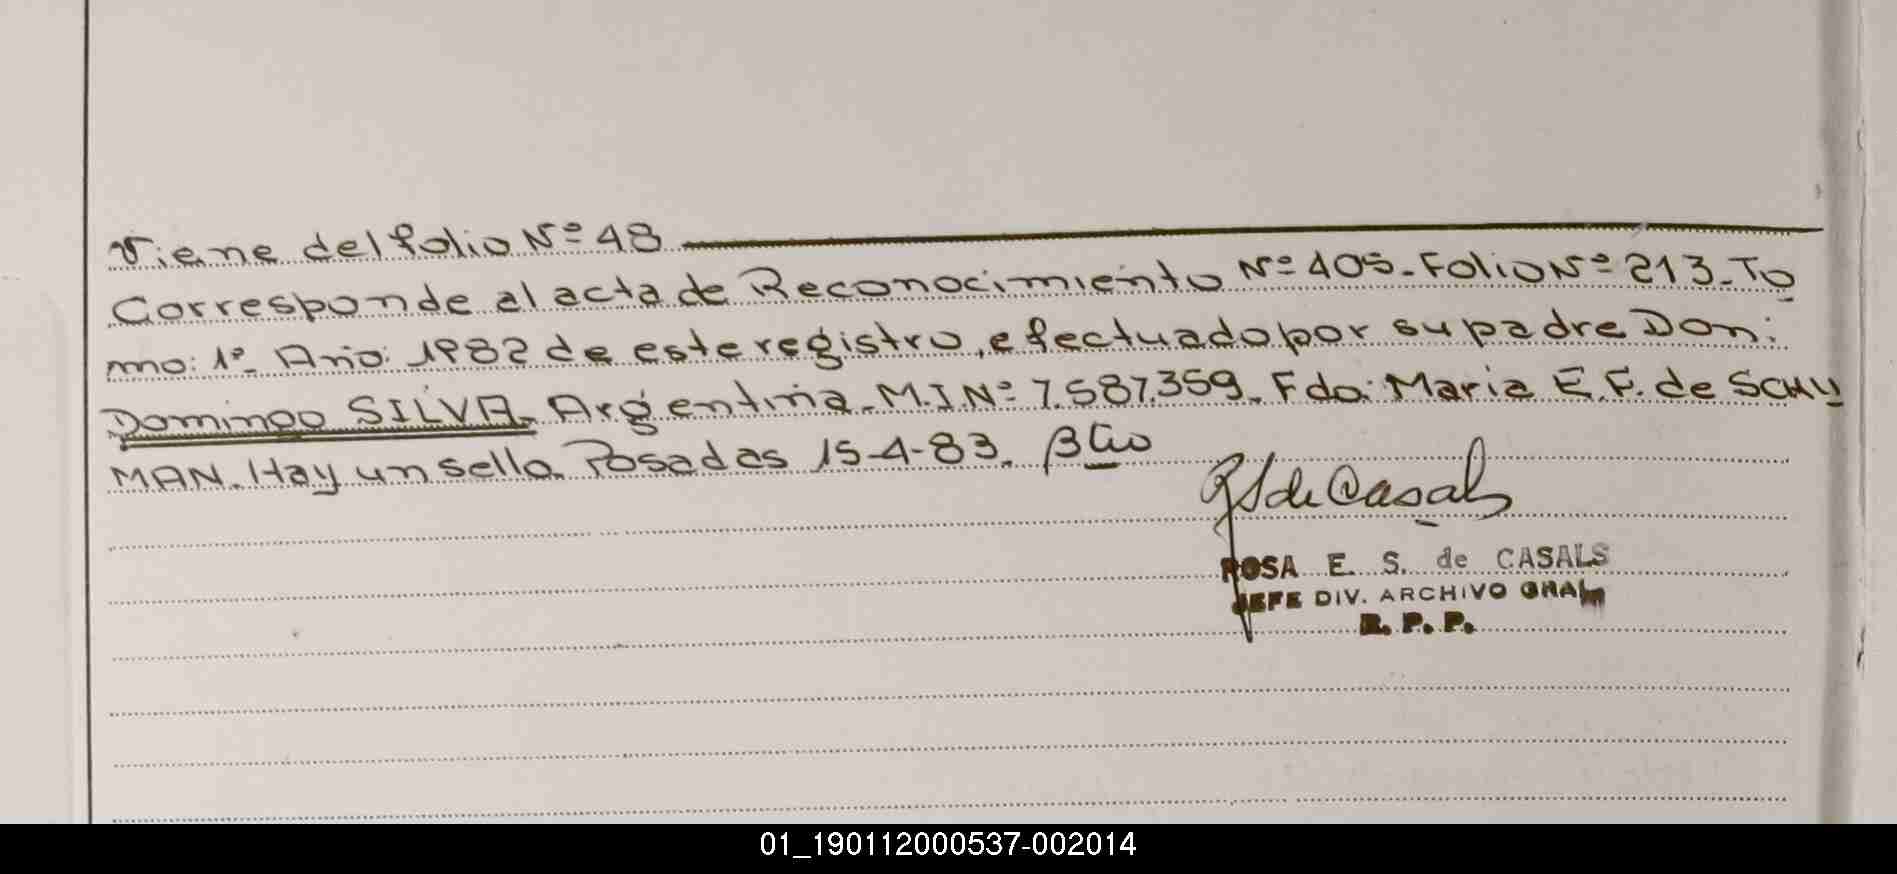 Viene del folio Nº 48
Corresponde al acta de Reconocimiento Nº 405. Folio Nº 213. To
mo: 1º. Año: 1982 de este registro, efectuado por su padre Don:
Domingo SILVA. Argentina. M.I.Nº 7.587.359. Fdo: Maria E. F. de SCHU
MAN. Hay un sello. Posadas 15-4-83.
R S de Casals
ROSA E. S. de CASALS
JEFE DIV. ARCHIVO GRAL
R. P. P.
01_190112000537-002014